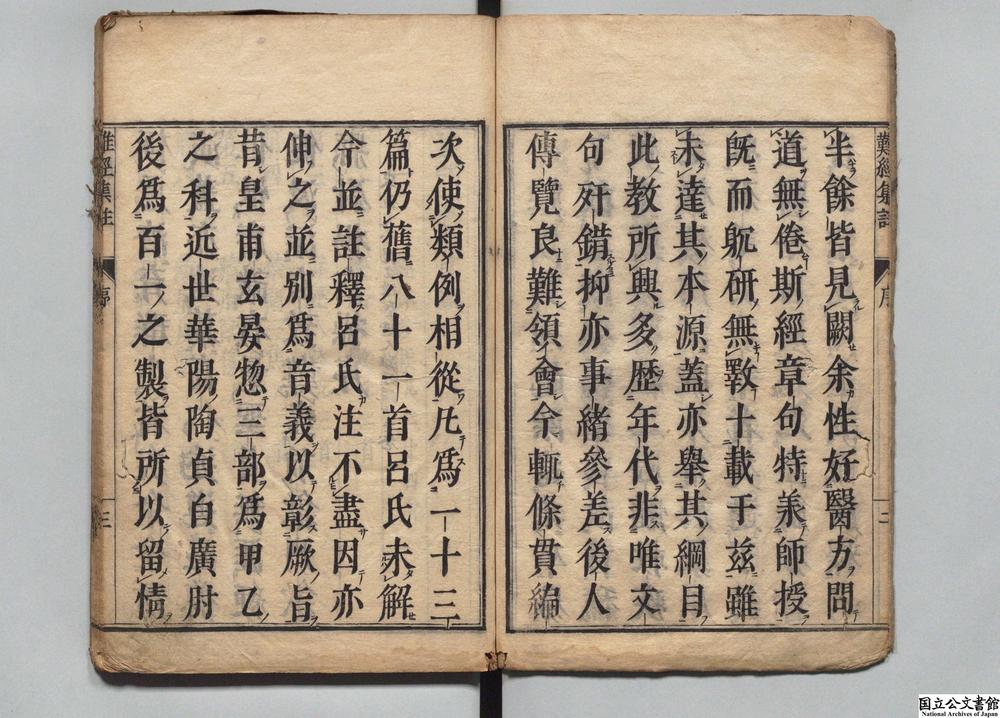 半餘皆見闕余性好醫方問
道無倦斯經章句特承師授
既而躭研無斁十載于茲雖
未達其本源蓋亦舉其綱目
此教所興多歴年代非唯文
句歼錯抑亦事緒參差後人
傳覽良難領會今輒條貫編
次使類例相從凡爲一十三
篇仍舊八十一首呂氏未解
今並註釋呂氏注不盡因亦
伸之並別爲音義以彰厥旨
昔皇甫玄晏惣三部爲甲乙
之科近世華陽陶貞白廣肘
後爲百一之製皆所以留情
難經集註
序
二
難經集註
序
三
国立公文書館
National Archives of Japan